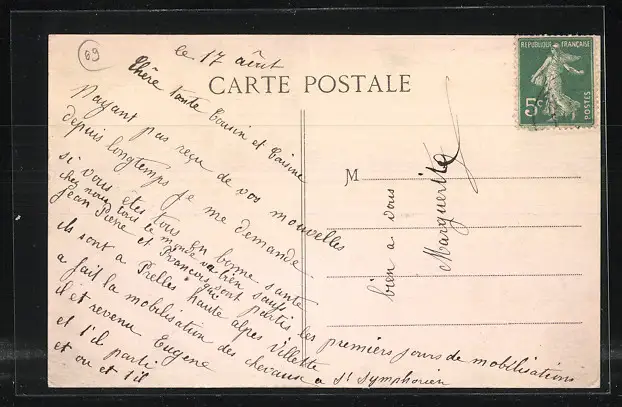 69
le 17 aôut
CARTE POSTALE
REPUBLIQUE FRANÇAISE
5c
POSTES
Chère tante Cousin et Cousine
N'ayant pas reçu de vos nouvelles
depuis longtemps je me demande
si vous êtes tous en bonne santé
chez nous tout le monde va bien sauf
Jean Pierre et François qui
sont partis les premiers jours de mobilisations
ils sont a Prelles haute alpes Villette
a fait la mobilisation des chevaux a St Symphorien
il et revenu Eugene
et t'il parti
et ou et t'il
M
bien a vous
Marguerite